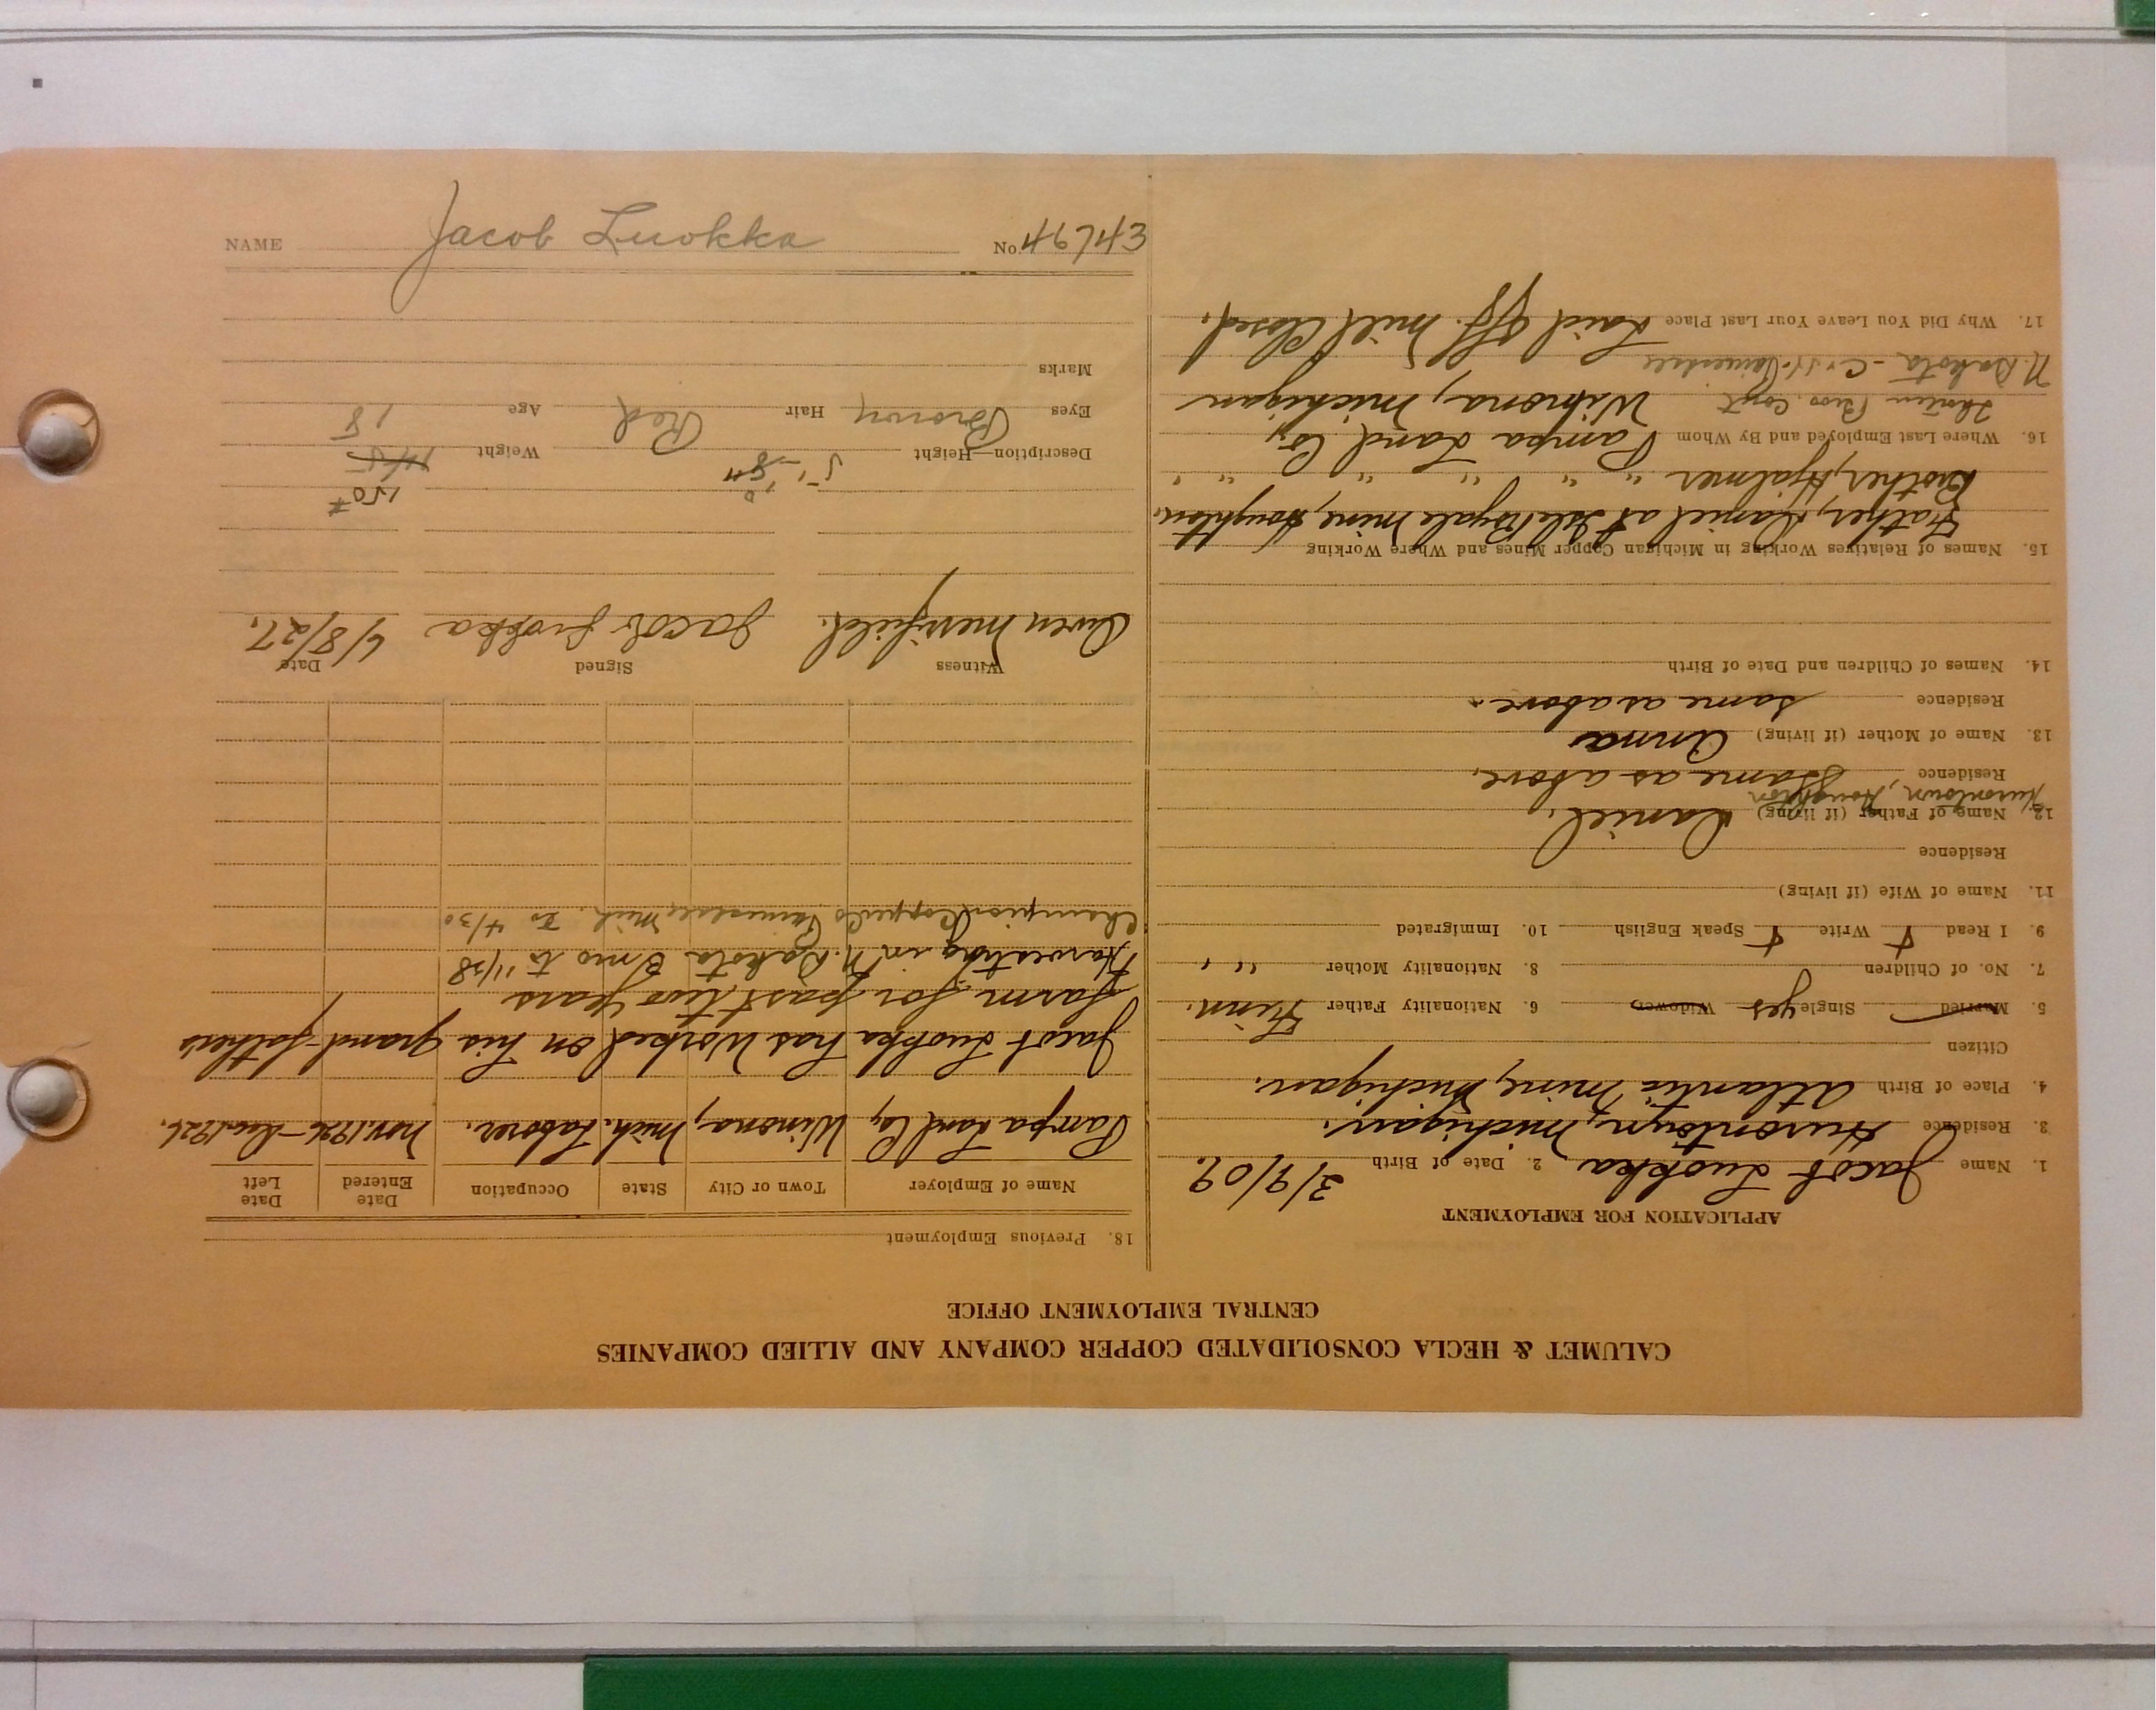 CALUMET & HECLA CONSOLIDATED COPPER COMPANY AND ALLIED COMPANIES
CENTRAL EMPLOYMENT OFFICE
APPLICATION FOR EMPLOYMENT
1. Name Jacob Luokka 2. Date of Birth 3/9/09.
3. Residence Hurontown, Michigan.
4. Place of Birth Atlantic Mine, Michigan.
Citizen
5. Married Single yes Widower 6. Nationality Father Finn.
7. No. of Children 8. Nationality Mother " "
9. I Read Write Speak English 10. Immigrated
11. Name of Wife (if living)
Residence
12. Name of Father (if living) Daniel.
Hurontown, Houghton
Residence Same as above.
13. Name of Mother (if living) Anna
Residence same as above.
14. Names of Children and Date of Birth
15. Names of Relatives Working in Michigan Copper Mines and Where Working
Father, Daniel at Isle Royale mine, Houghton.
Brother, Hjalmer " " " " "
16. Where Last Employed and By Whom Pampa Land Co,
Bros. Cont. Winona, Michigan
N. Dakota - Painesdale
17. Why Did You Leave Your Last Place Laid off. Mill Closed.
18. Previous Employment
Name of Employer Town or City State Occupation Date Entered Date Left
Pampa Land Co, Winona, Mich. Laborer. Nov. 1926 - Dec. 1926.
Jacob Luokka has worked on his grand-father's
farm for past two years
Harvesting in N. Dakota 3 mo to 11/28
Champion Copper Co Painesdale Mich. to 4/30
Witness Signed Date
Owen Merrifield. Jacob Luokka 6/8/27.
150#
Description—Height 5'-8" Weight 145
Eyes Brown Hair Red Age 18
Marks
No. 47643
NAME Jacob Luokka